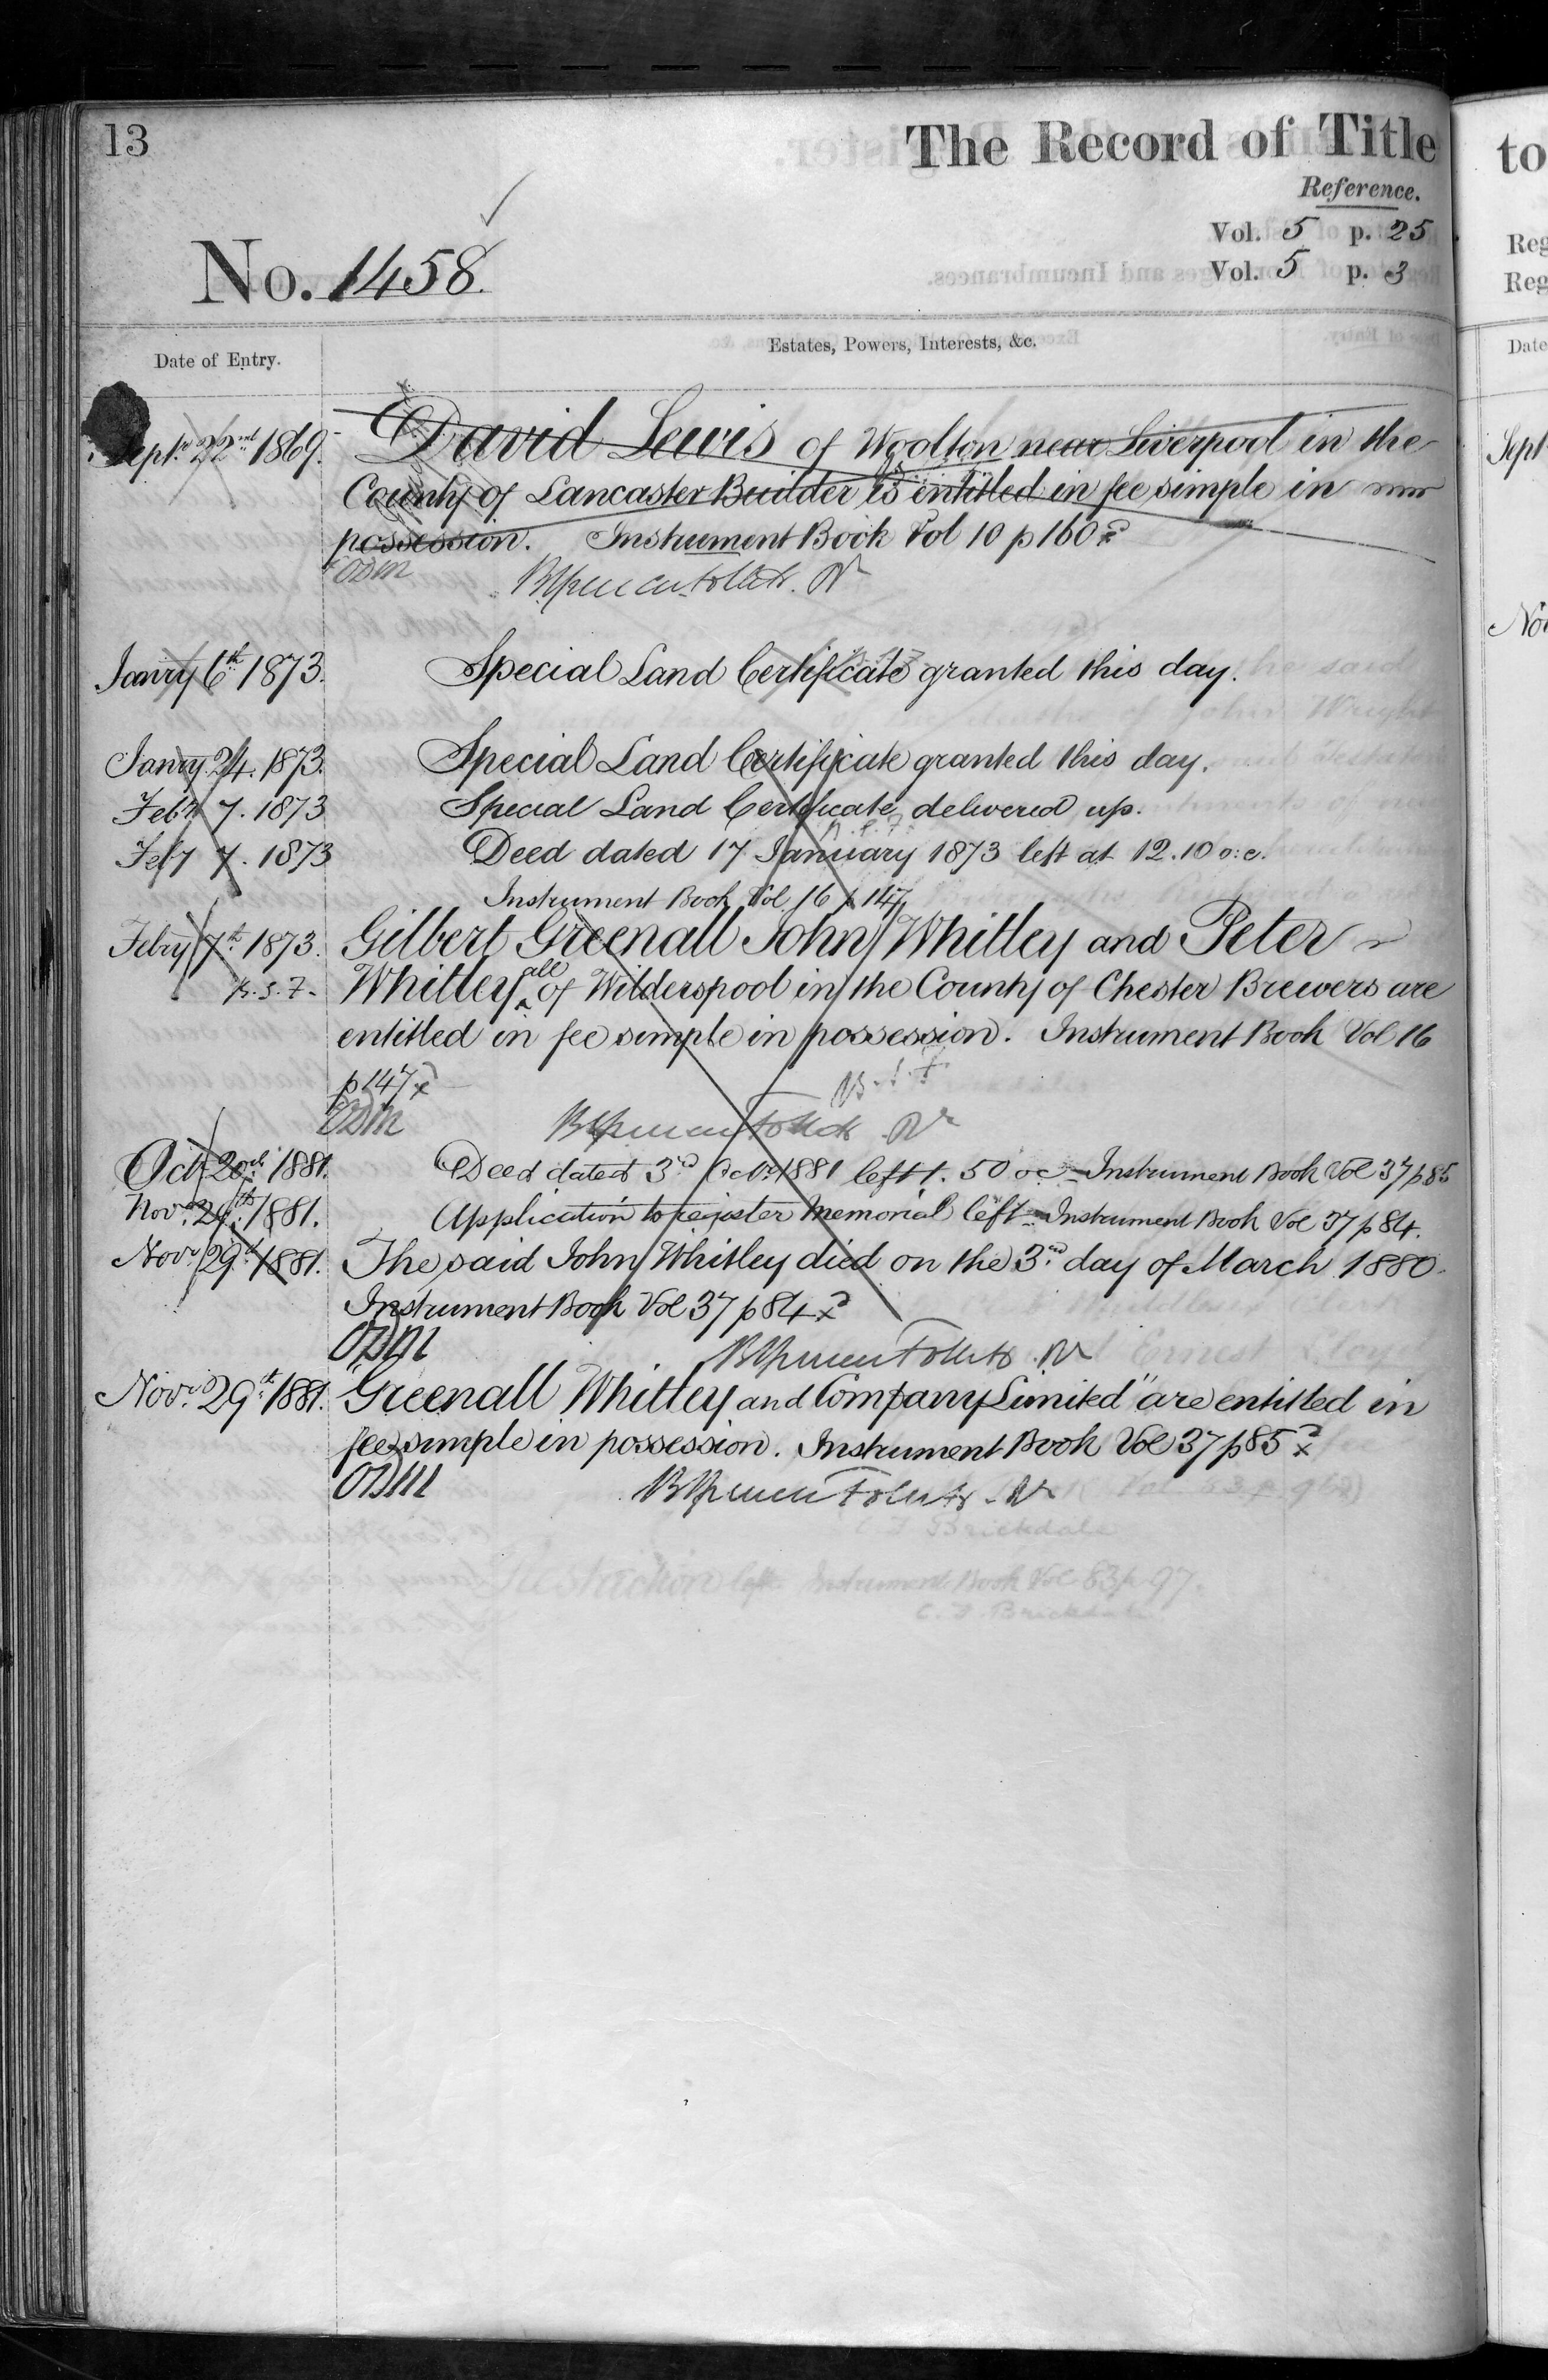 13
The Record of Title
Reference.
Vol. 5 p. 25
Vol. 5 p. 3
No. 1458.
Date of Entry.
Estates, Powers, Interests, &c.
Septr. 22nd 1869.
David Lewis of Woolton near Liverpool in the
County of Lancaster Builder is entitled in fee simple in
possession. Instrument Book Vol 10 p 160
Janry 6th 1873. Special Land Certificate granted this day.
Janry. 24. 1873. Special Land Certificate granted this day.
Feby 7. 1873 Special Land Certificate delivered up.
Feby 7. 1873 Deed dated 17 January 1873 left at 12.10 o.c.
Instrument Book Vol 16 p 147
Febry 7th 1873. Gilbert Greenall John Whitley and Peter
Whitley all of Wilderspool in the County of Chester Brewers are
entitled in fee simple in possession. Instrument Book Vol 16
p 147
Octr. 20th 1881. Deed dated 3rd Octr. 1881 left 1.50 oc - Instrument Book Vol 37 p 85
Novr. 29th 1881. Application to register Memorial left - Instrument Book Vol 37 p 84.
Novr 29th 1881. The said John Whitley died on the 3rd day of March 1880.
Instrument Book Vol 37 p 84
Novr. 29th 1881. "Greenall Whitley and Company Limited" are entitled in
fee simple in possession. Instrument Book Vol 37 p 85
to
Reg
Reg
Date
Sept
Nov